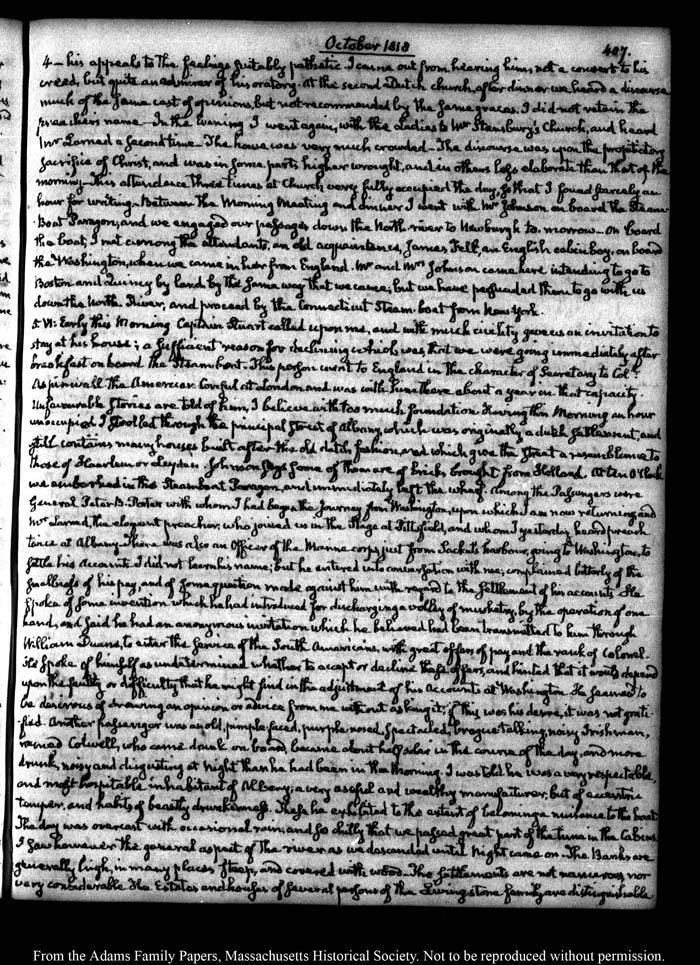 October 1818
407.
4 — his appeals to the feelings suitably pathetic. I came out from hearing him, not a convert to his
creed, but quite an admirer of his oratory. At the second Dutch church, after dinner we heard a discourse
much of the same cast of opinions, but not recommended by the same graces. I did not retain the
preacher's name — In the Evening I went again, with the Ladies to Mr Stansbury's Church, and heard
Mr Larned a second time — The house was very much crowded — The discourse was upon the propitiatory
sacrifice of Christ, and was in some parts higher wrought, and in others less elaborate than that of the
morning — This attendance three times at Church very fully occupied the day, so that I found scarcely an
hour for writing — Between the Morning Meeting and dinner I went with Mr Johnson on board the Steam-
Boat Paragon, and we engaged our passages down the North river to Newburgh to-morrow — on board
the boat, I met among the attendants, an old acquaintance, James Fell, an English cabin boy, on board
the Washington, when we came in her from England. Mr and Mrs Johnson came here intending to go to
Boston and Quincy by land, by the same way that we came; but we have persuaded them to go with us
down the North River, and proceed by the Connecticut Steam-boat from New-York.
5. VI: Early this Morning Captain Stuart called upon me, and with much civility gave us an invitation to
stay at his house; a sufficient reason for declining which was that we were going immediately after
breakfast on board the Steamboat. This person went to England in the character of Secretary to Coll.
Aspinwall the American Consul at London and was with him there about a year in that capacity.
Unfavourable stories are told of him, I believe with too much foundation. Having this Morning an hour
unoccupied I strolled through the principal street of Albany, which was originally a dutch settlement, and
still contains many houses built after the old dutch fashion, and which give the street a resemblance to
those of Haerlem or Leyden. Johnson says some of them are of bricks brought from Holland. At ten O'Clock
we embarked in the Steamboat Paragon, and immediately left the wharf. Among the Passengers were
General Peter B. Porter with whom I had begun the journey from Washington, upon which I am now returning, and
Mr Larned, the eloquent preacher, who joined us in the Stage at Pittsfield, and whom I yesterday heard preach
twice at Albany. There was also an Officer of the Marine corps just from Sackets harbour, going to Washington, to
settle his Accounts. I did not learn his name; but he entered into conversation with me; complained bitterly of the
smallness of his pay, and of some question made against him with regard to the settlement of his accounts. He
spoke of some invention which he had introduced for discharging a volley of musketry, by the operation of one
hand, and said he had an anonymous invitation which he believed had been transmitted to him through
William Duane, to enter the service of the South Americans, with great offers of pay and the rank of Colonel —
He spoke of himself as undetermined whether to accept or decline these offers, and hinted that it would depend
upon the facility or difficulty that he might find in the adjustment of his Accounts at Washington. He seemed to
be desirous of drawing an opinion or advice from me without asking it; if this was his desire, it was not grati-
fied. Another passenger was an old, pimple-faced, purple nosed, spectacled, brogue talking, noisy Irishman,
named Colwell, who came drunk on board, became about half sober in the course of the day, and more
drunk, noisy and disgusting at Night than he had been in the Morning. I was told he was a very respectable,
and most hospitable inhabitant of Albany; a very useful and wealthy manufacturer, but of eccentric
temper, and habits of beastly drunkenness. These he exhibited to the extent of becoming a nuisance to the boat.
The day was overcast with occasional rain; and so chilly that we passed great part of the time in the Cabins.
I saw however the general aspect of the river as we descended until Night came on. The Banks are
generally high, in many places steep, and covered with wood. The settlements are not numerous, nor
very considerable. The Estates and houses of several persons of the Livingstone family, are distinguishable
From the Adams Family Papers, Massachusetts Historical Society. Not to be reproduced without permission.